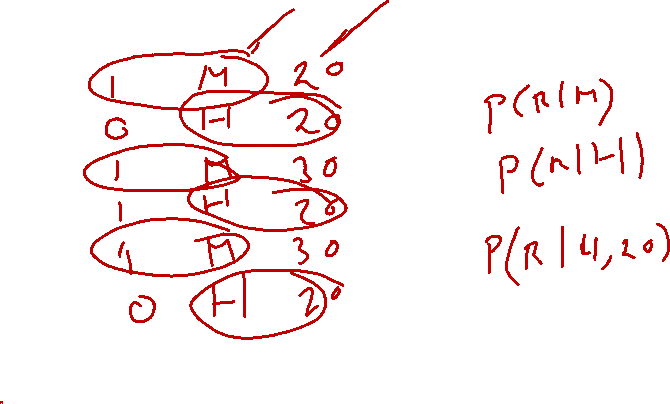 1 M 20
0 H 20
1 M 30
1 H 20
1 M 30
0 H 20
P(R|M)
P(R|H)
P(R|H,20)